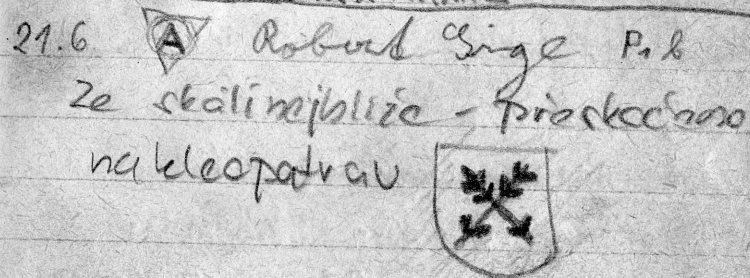 21.6 A Robert
ze skáli nejblíže - přeskočeno
na kleopatrau